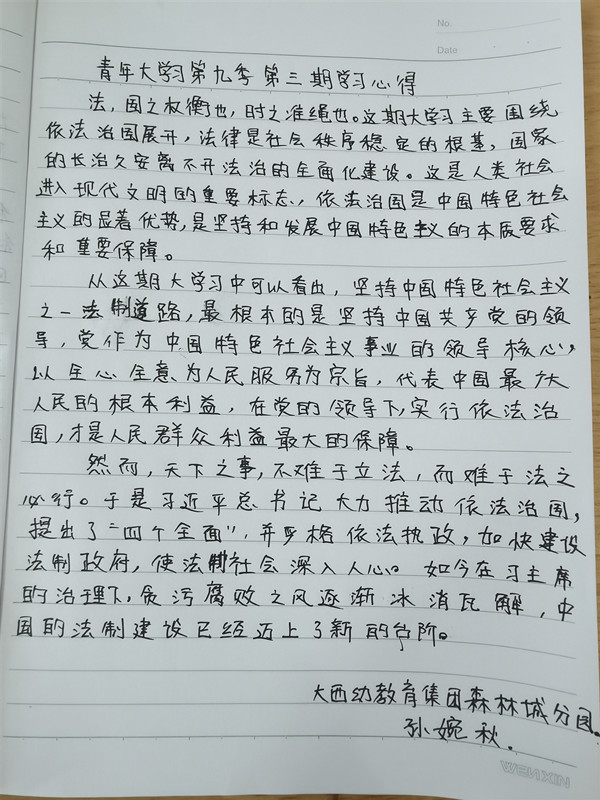 No.
Date
青年大学习第九季第三期学习心得
法,国之权衡也,时之准绳也。这期大学习主要围绕
依法治国展开,法律是社会秩序稳定的根基,国家
的长治久安离不开法治的全面化建设。这是人类社会
进入现代文明的重要标志,依法治国是中国特色社会
主义的显著优势,是坚持和发展中国特色主义的本质要求
和重要保障。
从这期大学习中可以看出,坚持中国特色社会主义
之一法制道路,最根本的是坚持中国共产党的领
导,党作为中国特色社会主义事业的领导核心,
以全心全意为人民服务为宗旨,代表中国最广大
人民的根本利益,在党的领导下,实行依法治
国,才是人民群众利益最大的保障。
然而,天下之事,不难于立法,而难于法之
必行。于是习近平总书记大力推动依法治国,
提出了“四个全面”,并严格依法执政,加快建设
法制政府,使法制社会深入人心。如今在习主席
的治理下,贪污腐败之风逐渐冰消瓦解,中
国的法制建设已经迈上了新的台阶。
大西幼教育集团森林城分园。
孙婉秋.
MIXNEW